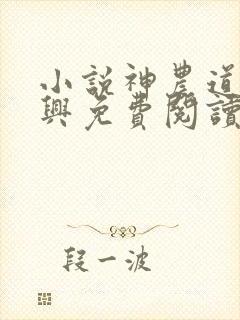 小說神農道
興免費閱讀
段一波